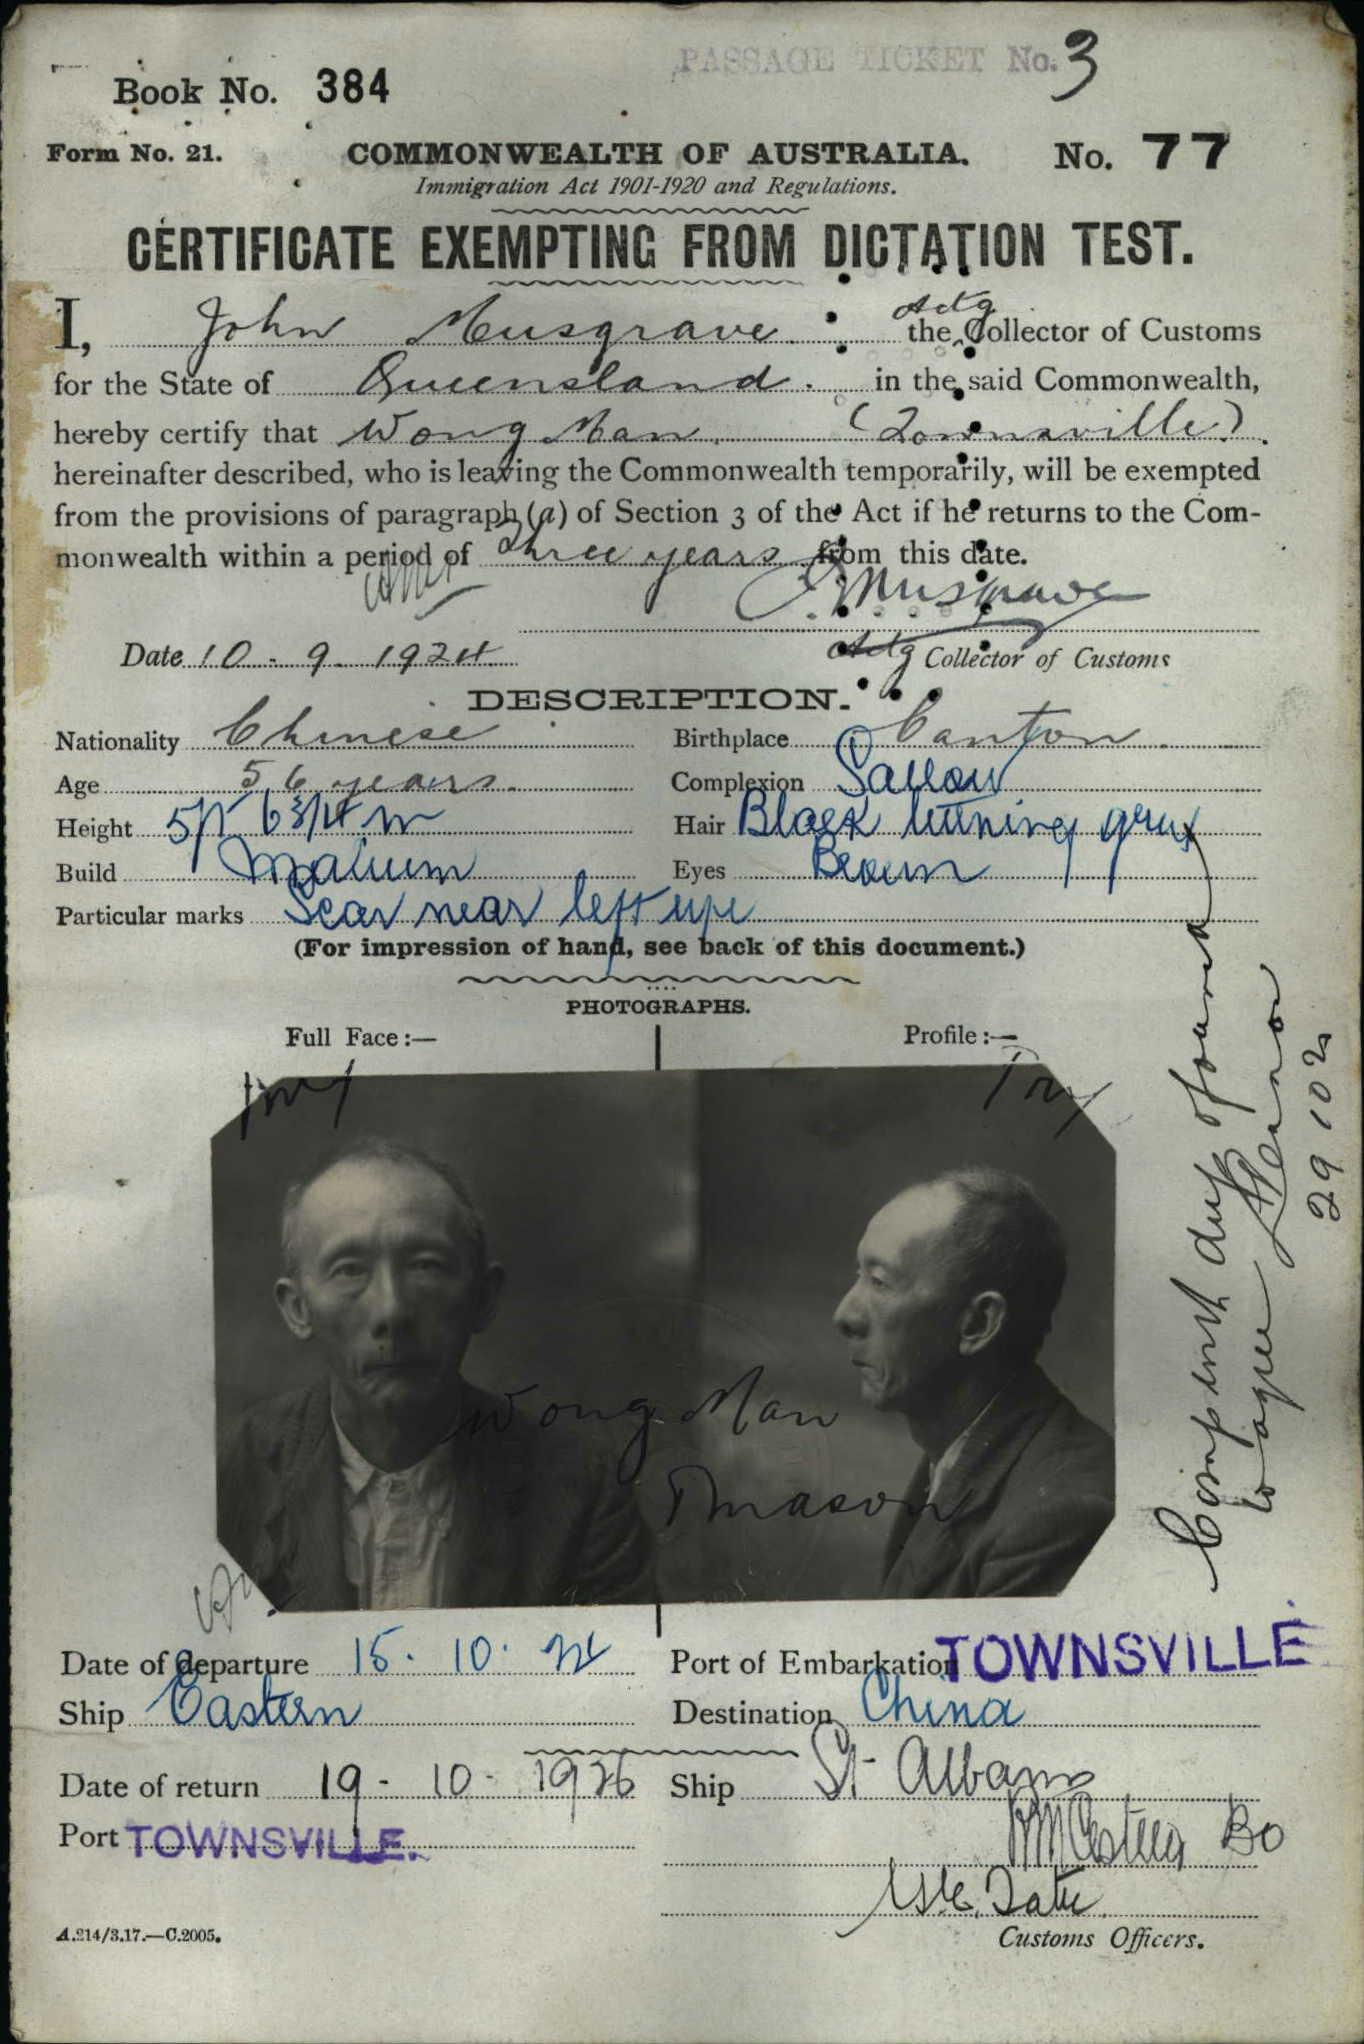 PASSAGE TICKET No. 3
Book No. 384
Form No. 21. COMMONWEALTH OF AUSTRALIA. No. 77
Immigration Act 1901-1920 and Regulations.
CERTIFICATE EXEMPTING FROM DICTATION TEST.
I, John Musgrave Actg the Collector of Customs
for the State of Queensland. in the said Commonwealth,
hereby certify that Wong Man. (Townsville).
hereinafter described, who is leaving the Commonwealth temporarily, will be exempted
from the provisions of paragraph (a) of Section 3 of the Act if he returns to the Com-
monwealth within a period of three years from this date.
J Musgrave
Date 10. 9. 1924. Actg Collector of Customs
DESCRIPTION.
Nationality Chinese Birthplace Canton.
Age 56 years. Complexion Sallow
Height 5ft 6 3/4 in Hair Black turning grey
Build Medium Eyes Brown
Particular marks Scar near left eye
(For impression of hand, see back of this document.)
PHOTOGRAPHS.
Full Face:— Profile:—
Wong Man
TMason
to agree
29 10 2
Date of departure 15. 10. 24 Port of Embarkation TOWNSVILLE
Ship Eastern Destination China
Date of return 19 - 10 - 1926 Ship St Albans
Port TOWNSVILLE.
Tate.
A.214/3.17.—C.2005. Customs Officers.